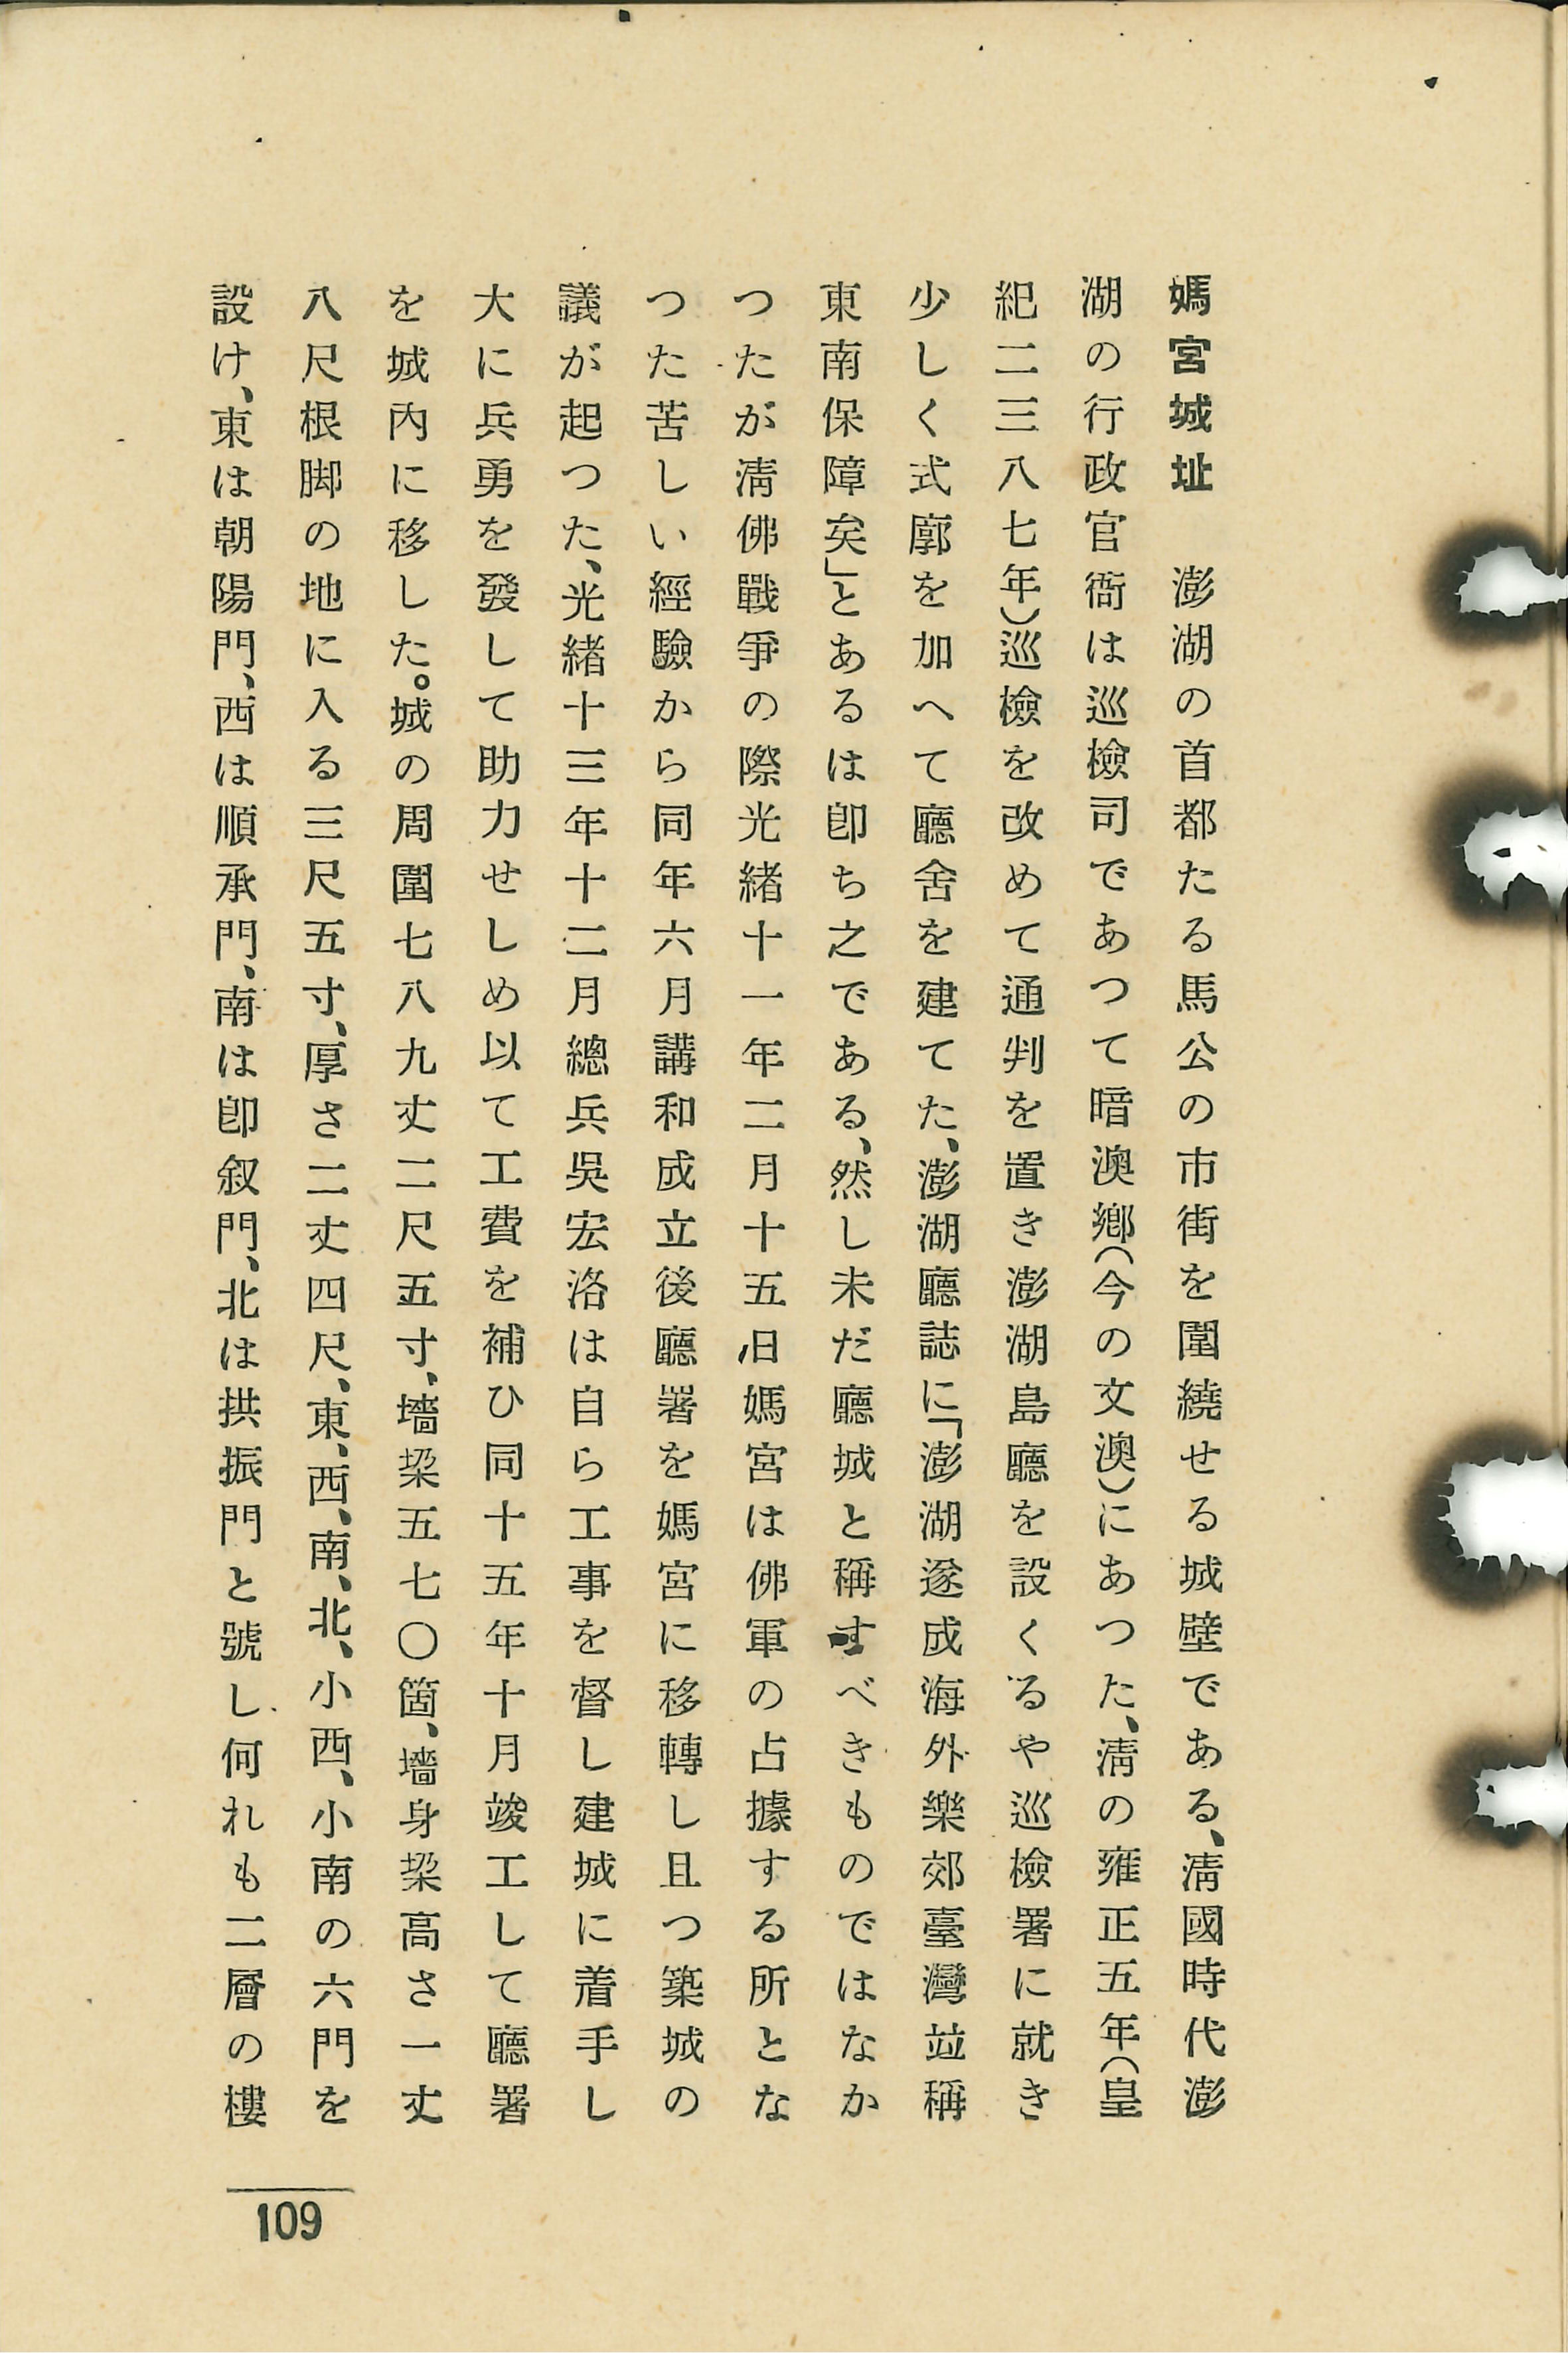 媽宮城址　澎湖の首都たる馬公の市街を圍繞せる城壁である、淸國時代澎
湖の行政官衙は巡檢司であつて暗澳鄕(今の文澳)にあつた、淸の雍正五年(皇
紀二三八七年)巡檢を改めて通判を置き澎湖島廳を設くるや巡檢署に就き
少しく式廓を加へて廳舍を建てた、澎湖廳誌に「澎湖遂成海外樂郊臺灣竝稱
東南保障矣」とあるは卽ち之である、然し未だ廳城と稱すべきものではなか
つたが淸佛戰爭の際光緖十一年二月十五日媽宮は佛軍の占據する所とな
つた苦しい經驗から同年六月講和成立後廳署を媽宮に移轉し且つ築城の
議が起つた、光緖十三年十二月總兵吳宏洛は自ら工事を督し建城に着手し
大に兵勇を發して助力せしめ以て工費を補ひ同十五年十月竣工して廳署
を城內に移した。城の周圍七八九丈二尺五寸、墻垜五七〇箇、墻身垜高さ一丈
八尺根脚の地に入る三尺五寸、厚さ二丈四尺、東、西、南、北、小西、小南の六門を
設け、東は朝陽門、西は順承門、南は卽叙門、北は拱振門と號し何れも二層の樓
109